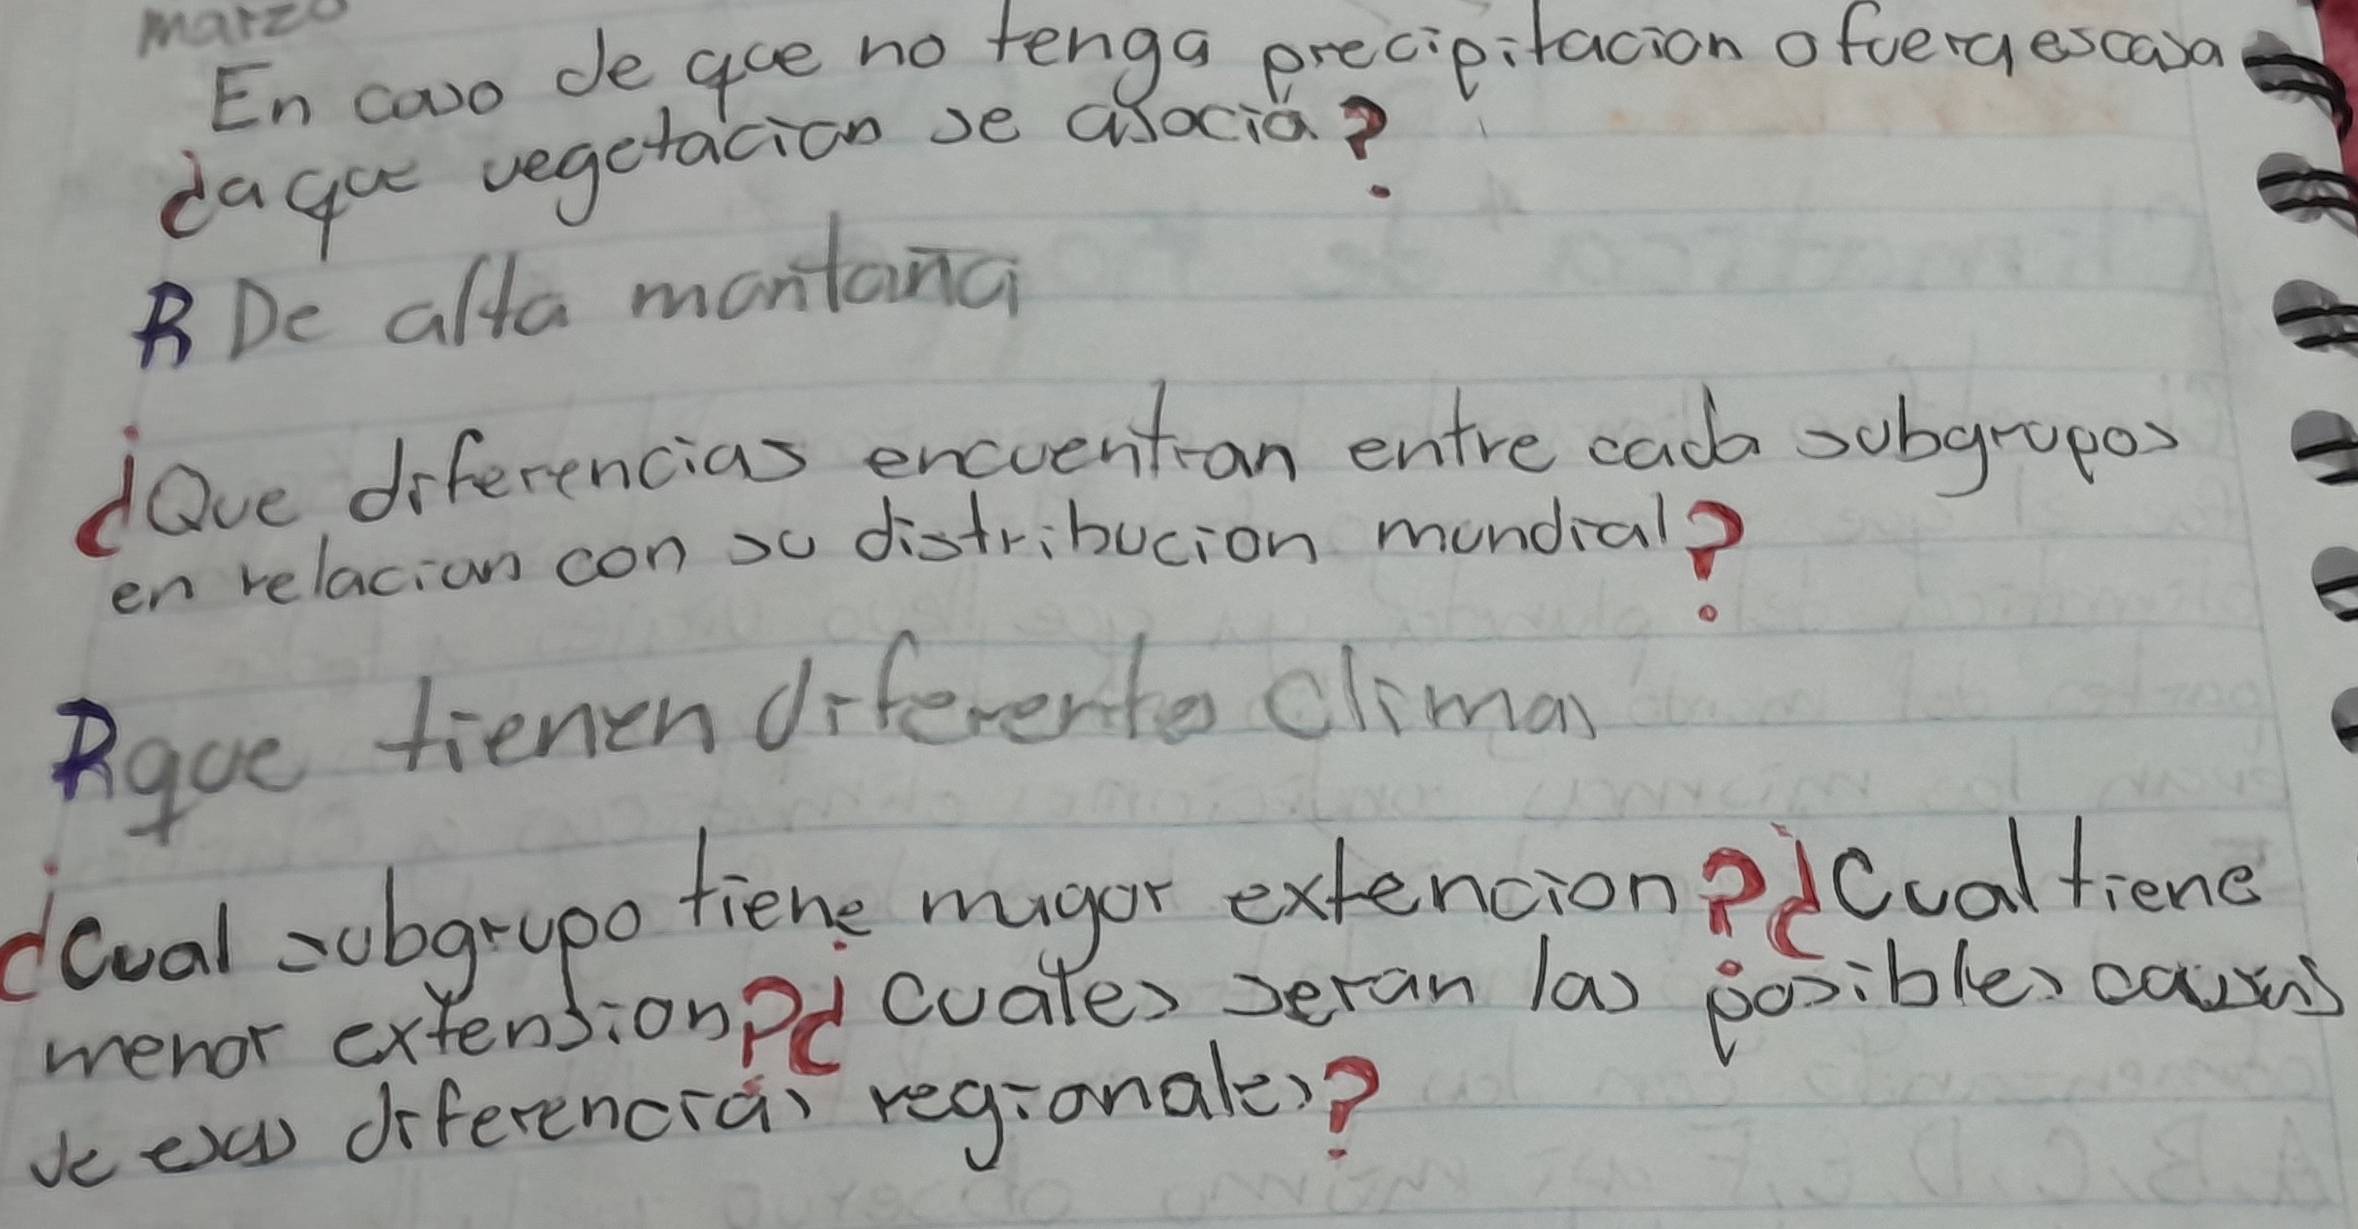 marzo
En caso de que no tenga precipitacion o fuera escasa
¿a que vegetacion se asocia?
R De alta montaña
¿Que diferencias encuentran entre cada subgrupos
en relacion con su distribucion mundial?
R que tienen diferente climas
¿Cual subgrupo tiene mayor extencion? ¿Cual tiene
menor extension? ¿cuales seran las posibles causas
de esas diferencias regionales?